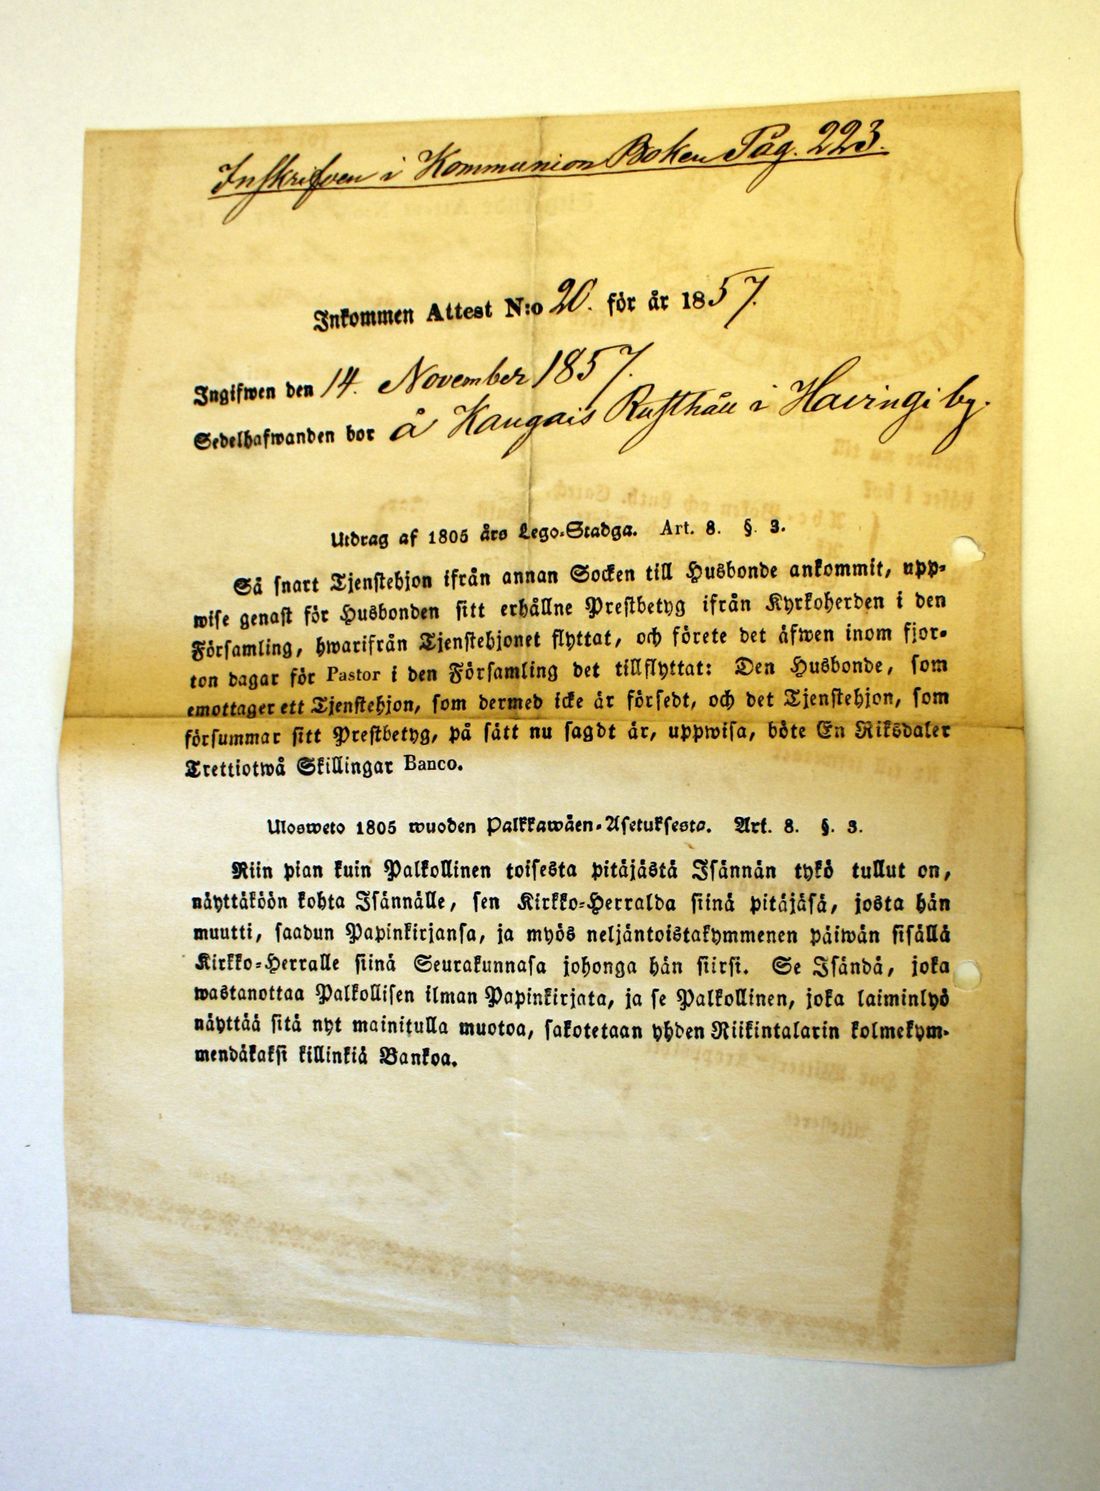 Inskrifven i Kommunion Boken Pag. 223.
Inkommen Attest N:o 20. för år 1857.
Ingifwen den 14. November 1857.
Sedelhafwanden bor å Kaugais Rusthåll i Hairingi by.
Utdrag af 1805 års Lego-Stadga. Art. 8. §. 3.
Så snart Tjenstehjon ifrån annan Socken till Husbonde ankommit, upp-
wise genast för Husbonden sitt erhållne Prestbetyg ifrån Kyrkoherden i den
Församling, hwarifrån Tjenstehjonet flyttat, och förete det äfwen inom fjor-
ton dagar för Pastor i den Församling det tillflyttat: Den Husbonde, som
emottager ett Tjenstehjon, som dermed icke är försedt, och det Tjenstehjon, som
försummar sitt Prestbetyg, på sätt nu sagdt är, uppwisa, böte En Riksdaler
Trettiotwå Skillingar Banco.
Ulosweto 1805 wuoden Palkkawäen-Asetuksesta. Art. 8. §. 3.
Niin pian kuin Palkollinen toisesta pitäjästä Isännän tykö tullut on,
näyttäköön kohta Isännälle, sen Kirkko-Herralda siinä pitäjäsä, josta hän
muutti, saadun Papinkirjansa, ja myös neljäntoistakymmenen päiwän sisällä
Kirkko-Herralle siinä Seurakunnasa johonga hän siirsi. Se Isändä, joka
wastanottaa Palkollisen ilman Papinkirjata, ja se Palkollinen, joka laiminlyö
näyttää sitä nyt mainitulla muotoa, sakotetaan yhden Riikintalarin kolmekym-
mendäkaksi killinkiä Bankoa.